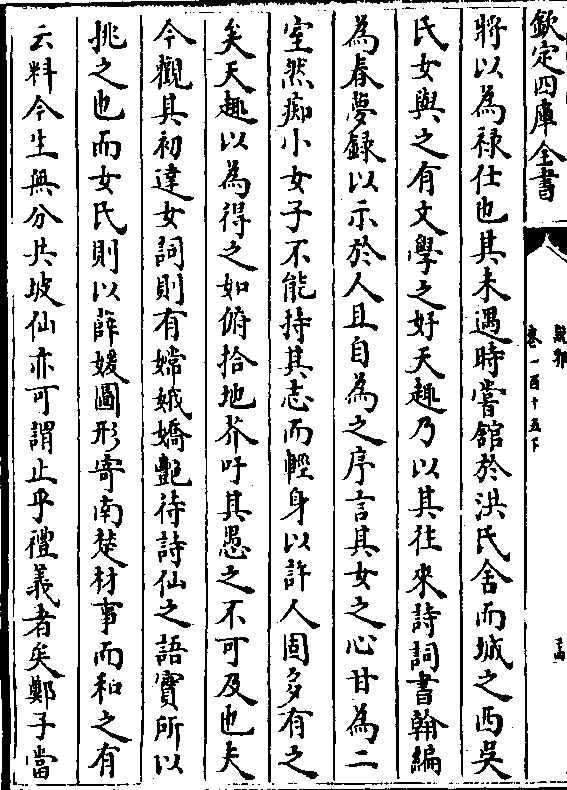 欽定四庫全書
說郛
卷一百十五下
將以為祿仕也其未遇時嘗舘於洪氏舍而城之西吳
氏女與之有文學之好天趣乃以其往來詩詞書翰編
為春夢録以示於人且自為之序言其女之心甘為二
室然痴小女子不能持其志而輕身以許人固多有之
矣天趣以為得之如俯拾地芥吁其愚之不可及也夫
今觀其初達女詞則有嫦娥嬌艷待詩仙之語實所以
挑之也而女氏則以薛媛圖形寄南楚材事而和之有
云料今生無分共坡仙亦可謂止乎禮義者矣鄭子當